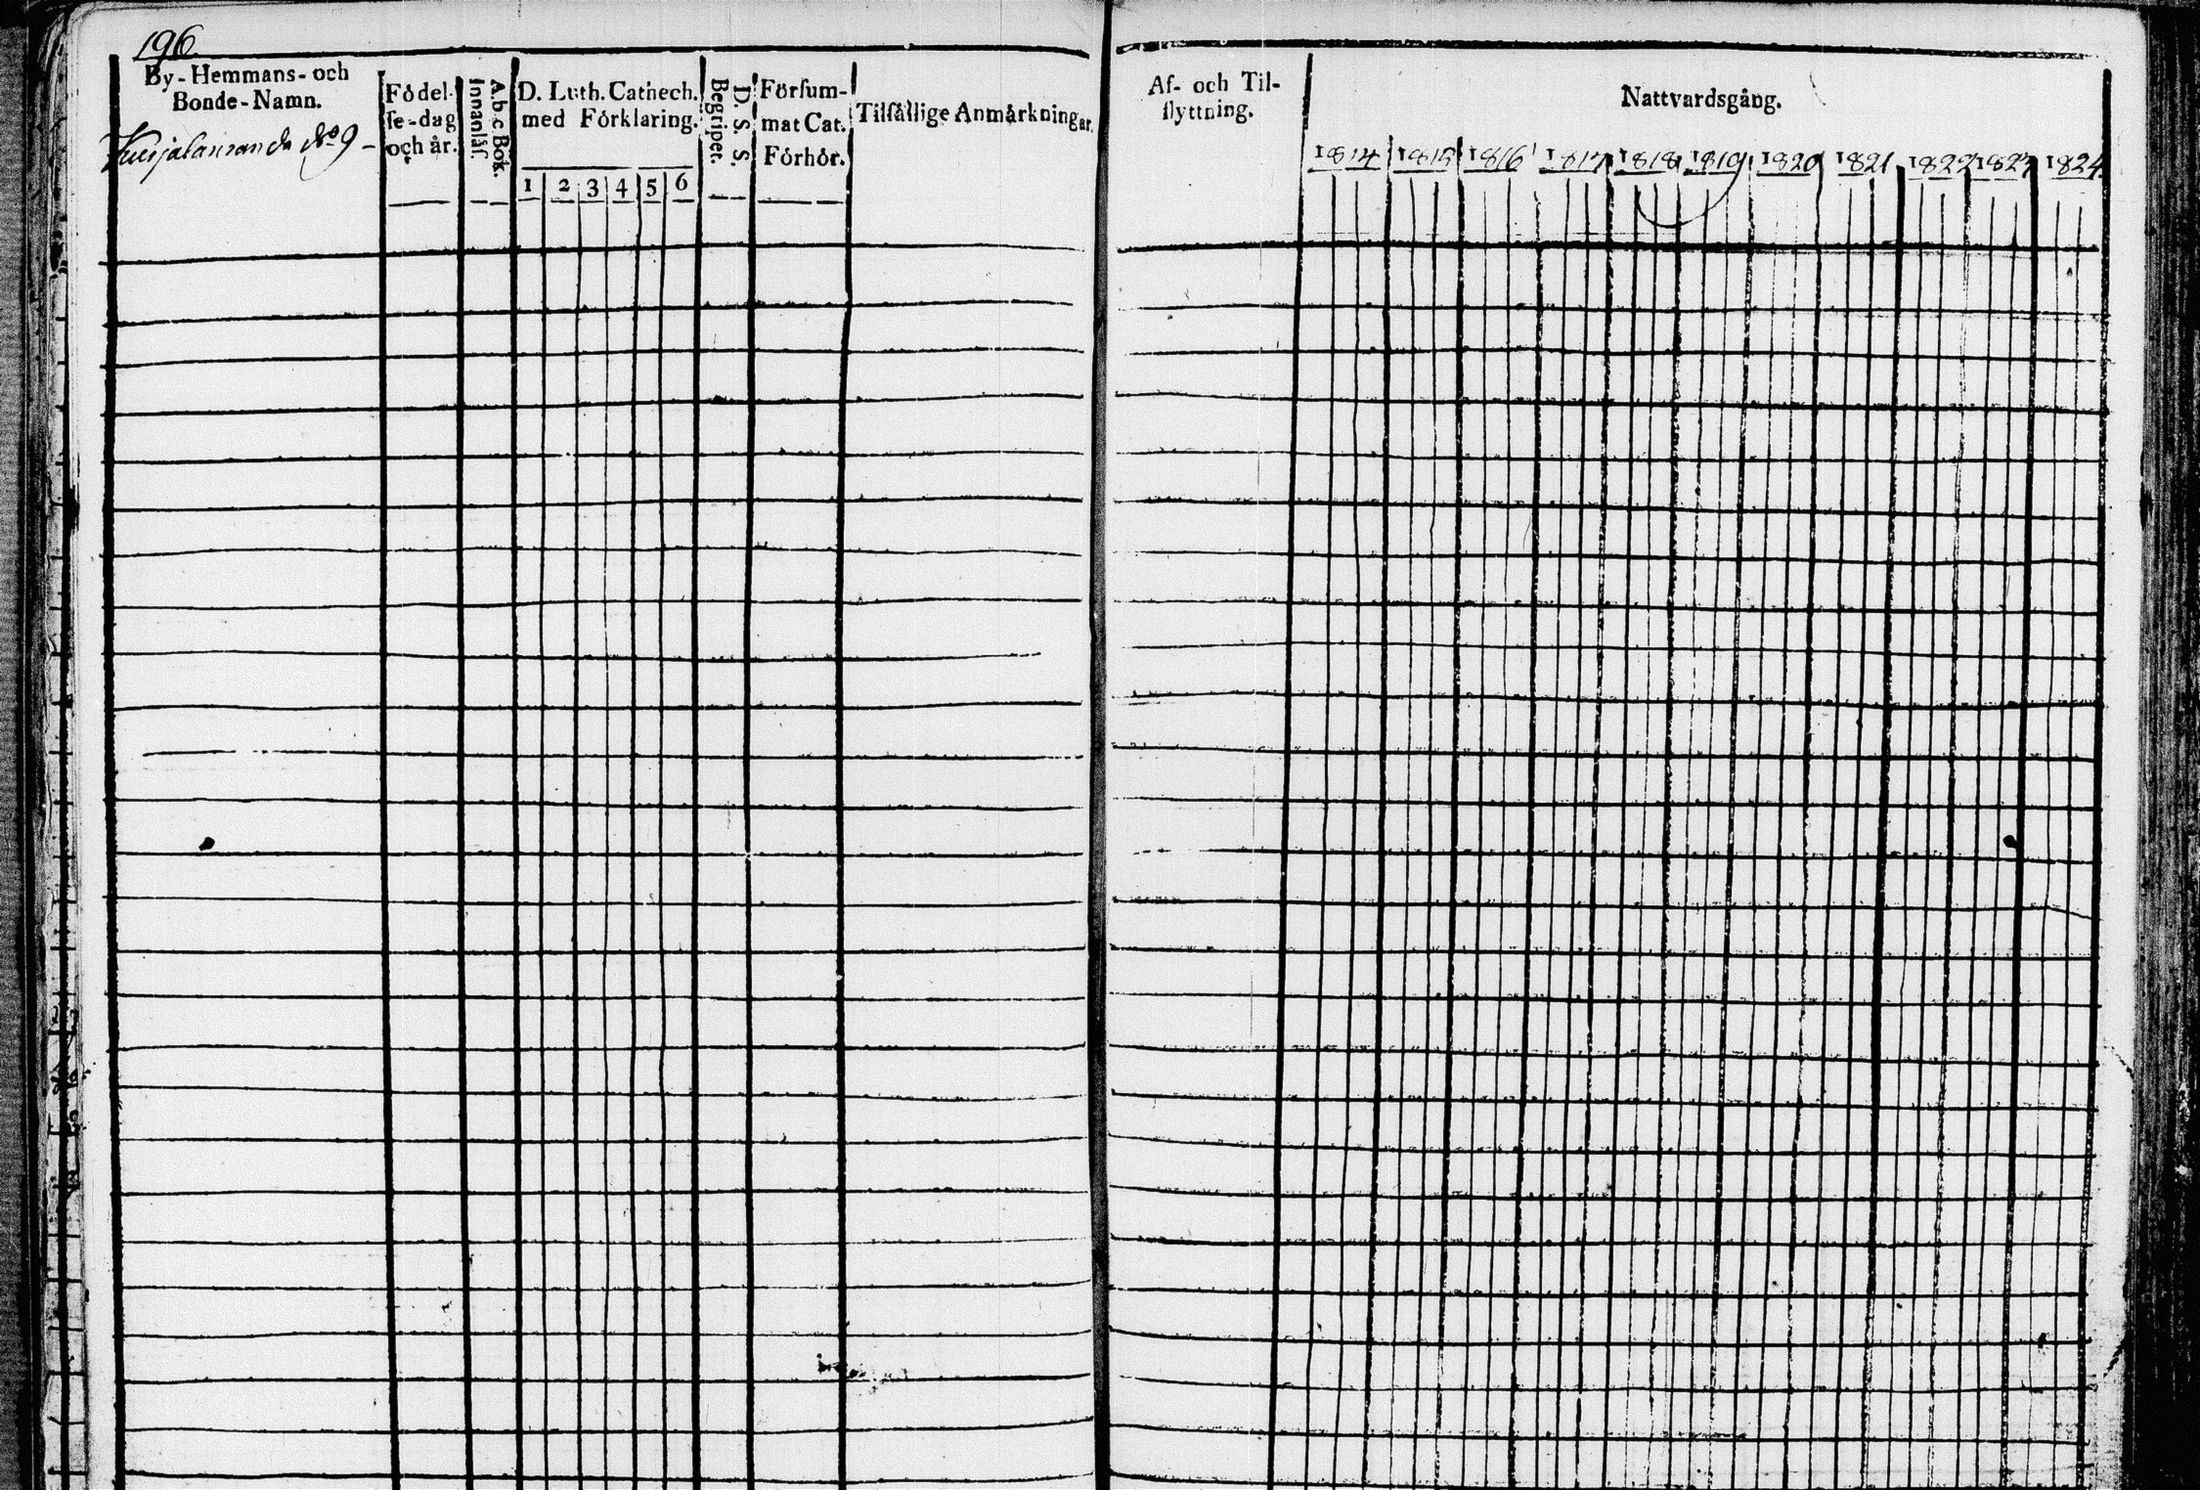 196.
By-Hemmans- och
Bonde-Namn.
No 9
Födel-
ſe-dag
och år.
A.b.c Bok.
Innanläſ.
D. Luth. Cathech.
med Förklaring.
1 2 3 4 5 6
D. S. S.
Begriper.
Förſum-
mat Cat.
Förhör.
Tilfällige Anmärkningar.
Af- och Til-
flyttning.
Nattvardsgång.
1814 1815 1816 1817 1818 1819 1820 1821 1822 1823 1824